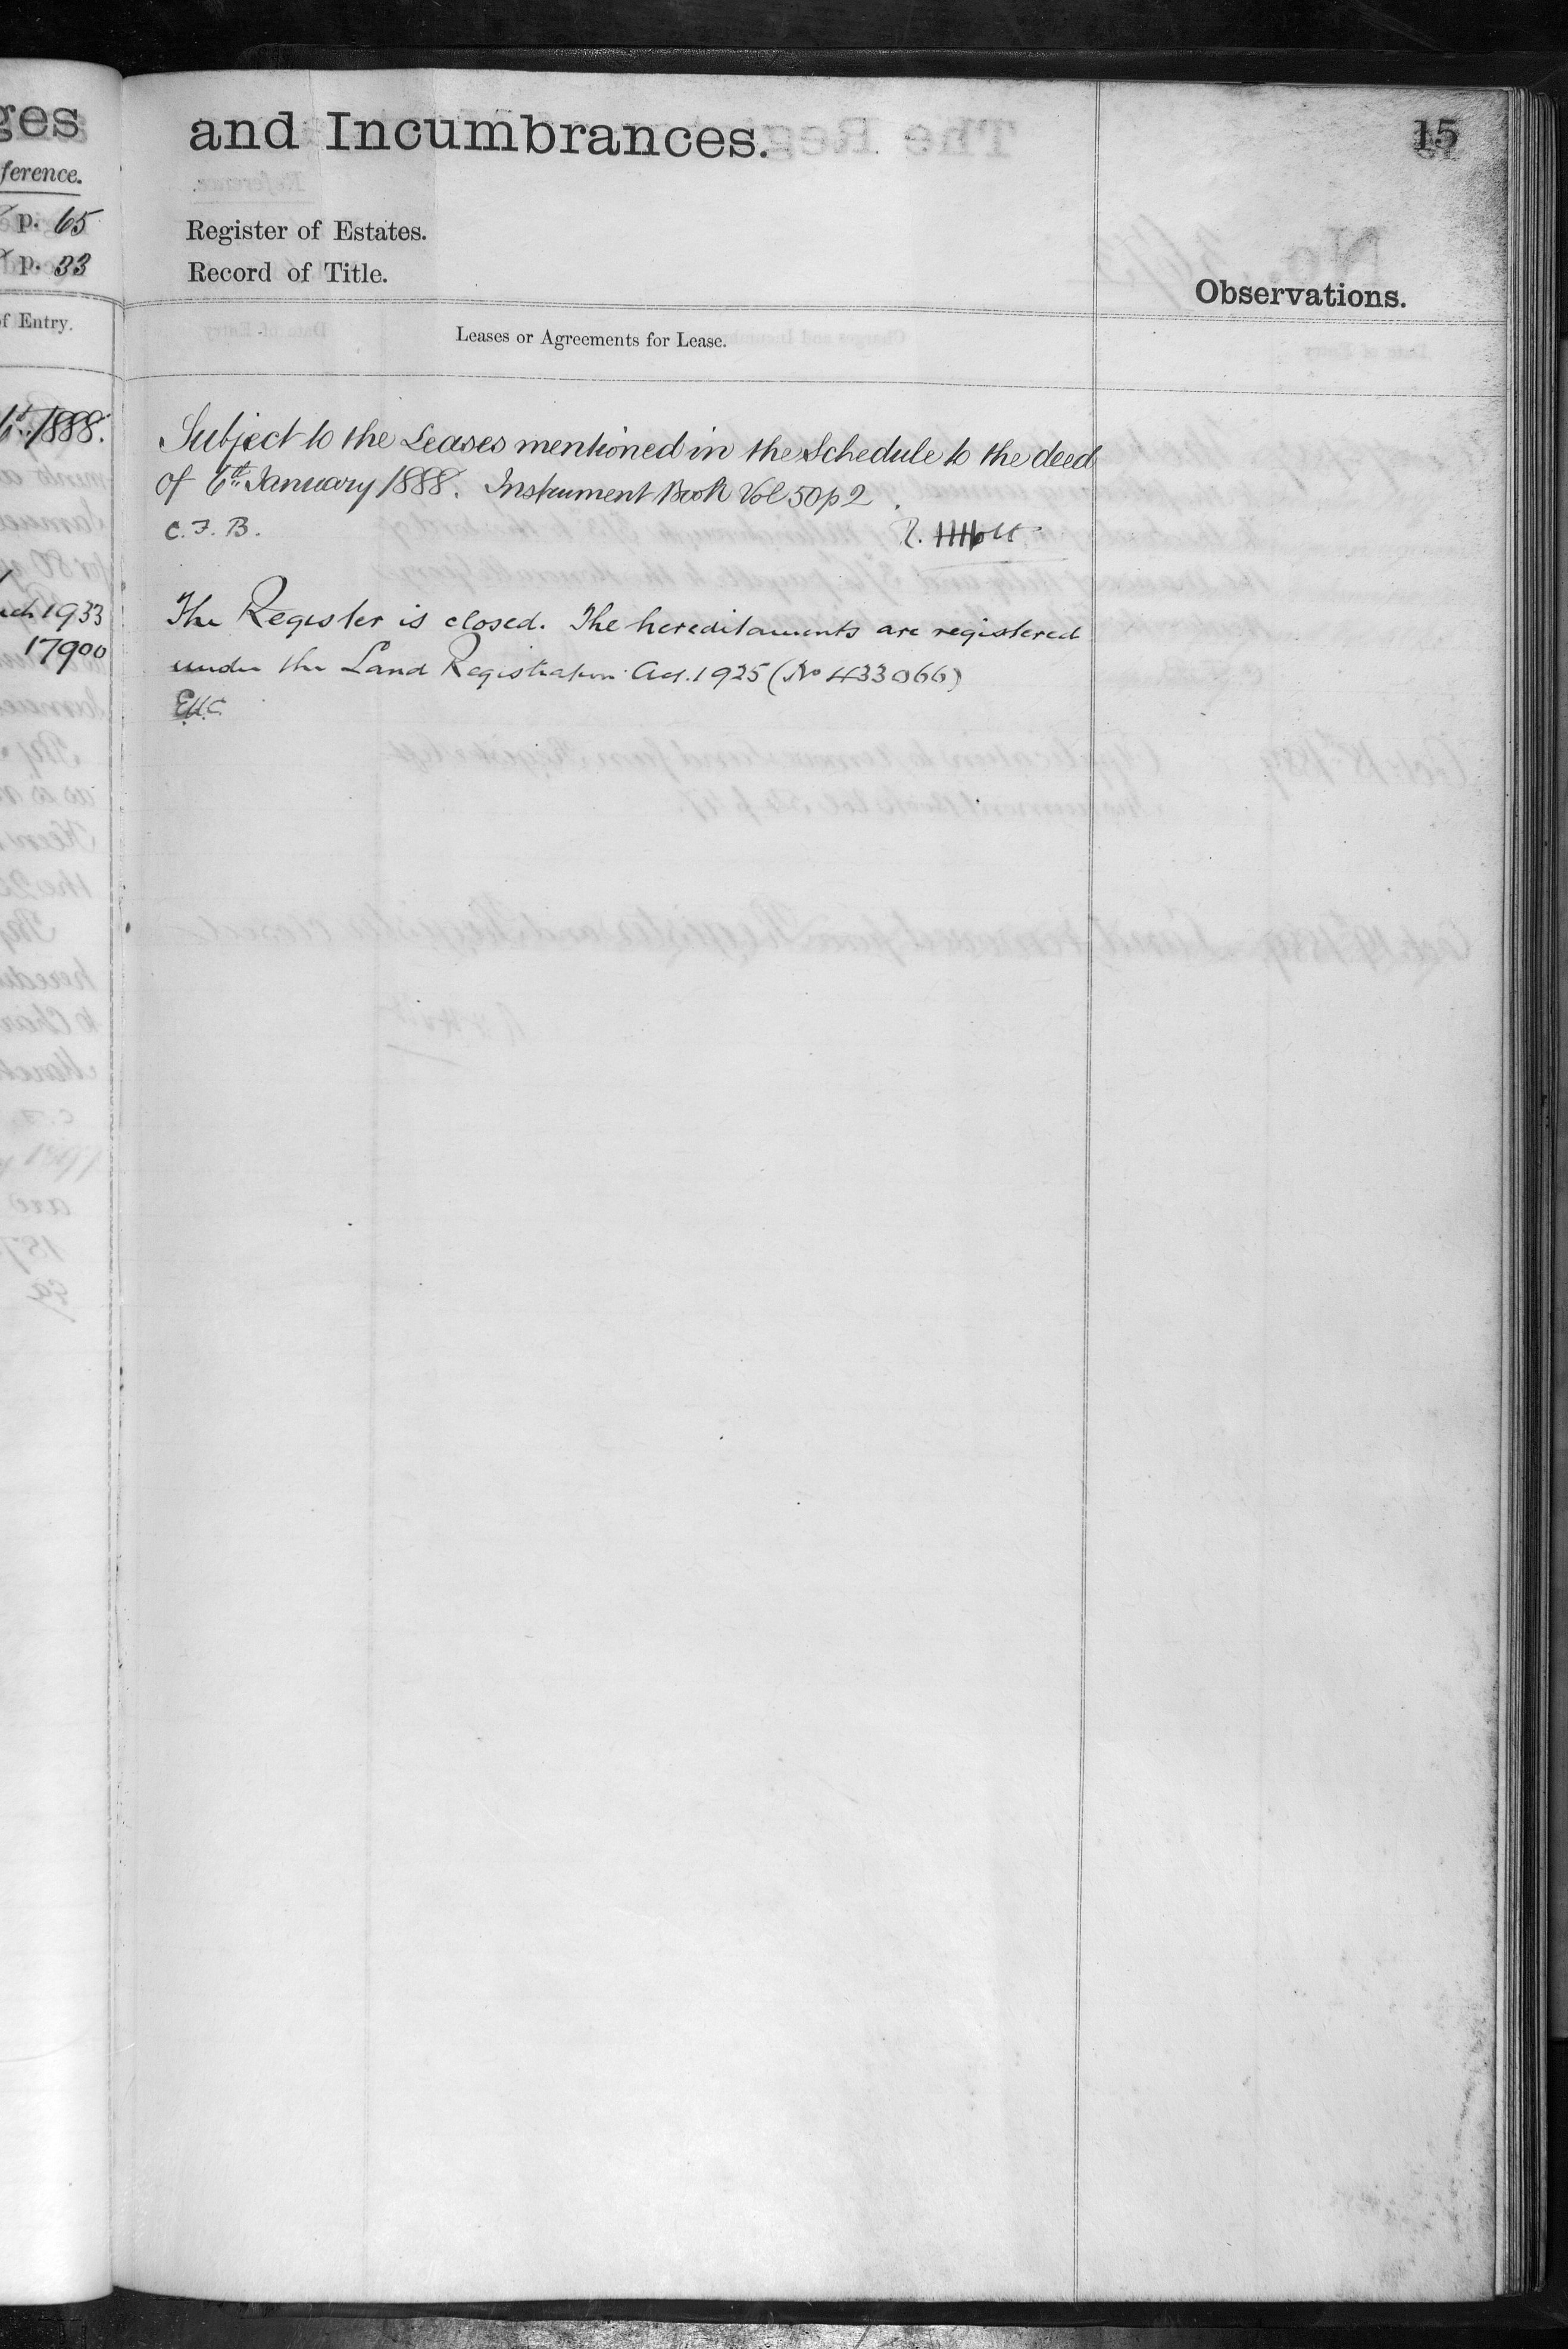 ges
ference.
p. 65
p. 33
f Entry.
1888.
1933
17900
and Incumbrances.
15
Register of Estates.
Record of Title.
Observations.
Leases or Agreements for Lease.
Subject to the Leases mentioned in the Schedule to the deed
of 6th January 1888. Instrument Book Vol 50 p 2.
C. F. B.
The Register is closed. The hereditaments are registered
under the Land Registration Act. 1925 (No 433066)